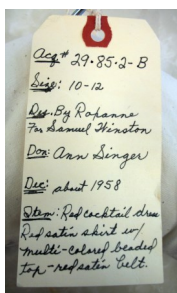 Acq# 29.85.2-B
Size: 10-12
Des. By Roxanne
For Samuel Winston
Don: Ann Singer
Dec: about 1958
Item: Red cocktail dress
Red satin skirt w/
multi-colored beaded
top - red satin belt.